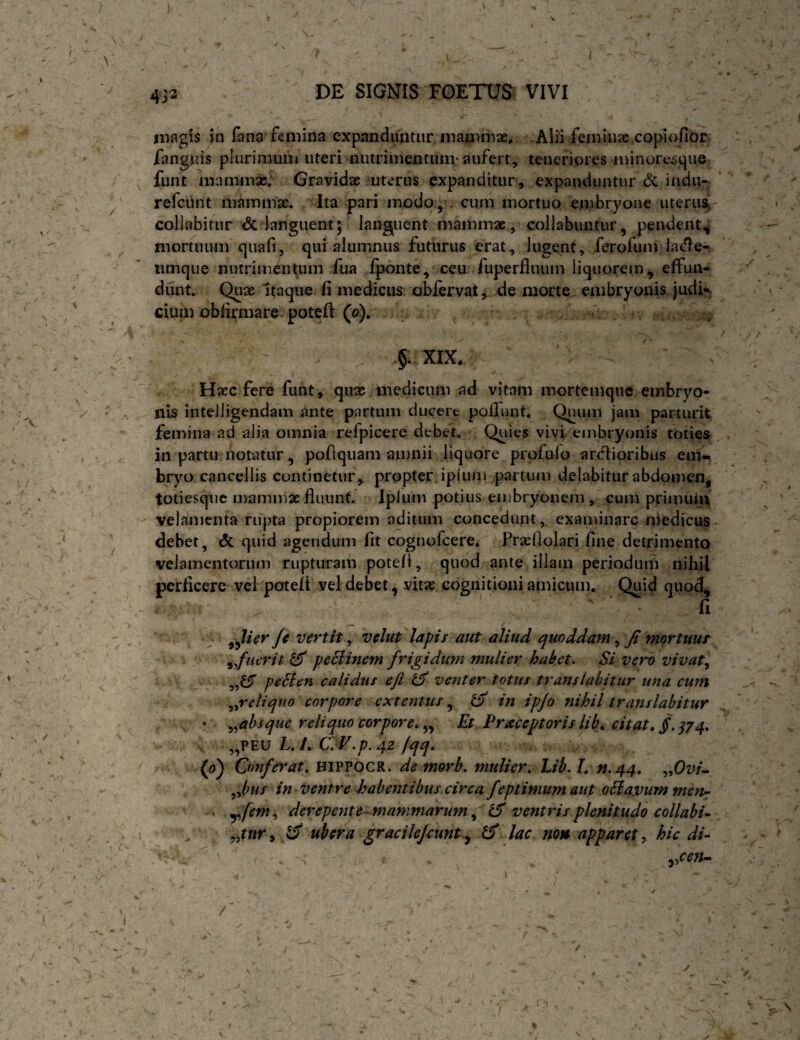 432 DE SIGNIS FOETUS VIVI
magis in ſana femina expanduntur mammæ. Alii feminæ copioſior
ſanguis plurimum uteri nutrimentum aufert, teneriores minoresque
ſunt mammæ. Gravidæ uterus expanditur, expanduntur & indu-
reſcunt mammæ. Ita pari modo, cum mortuo embryone uterus
collabitur & languent; languent mammæ, collabuntur, pendent,
mortuum quaſi, qui alumnus futurus erat, lugent, ſeroſum lacte-
umque nutrimentum ſua ſponte, ceu ſuperfluum liquorem, effun-
dunt. Quæ itaque ſi medicus obſervat, de morte embryonis judi-
cium obfirmare poteſt (o).
§. XIX.
Hæc fere ſunt, quæ medicum ad vitam mortemque embryo-
nis intelligendam ante partum ducere poſſunt. Quum jam parturit
femina ad alia omnia reſpicere debet. Quies vivi embryonis toties
in partu notatur, poſtquam amnii liquore profuſo arctioribus em-
bryo cancellis continetur, propter ipſum partum delabitur abdomen,
totiesque mammæ fluunt. Ipſum potius embryonem, cum primum
velamenta rupta propiorem aditum concedunt, examinare medicus
debet, & quid agendum ſit cognoſcere. Præſtolari ſine detrimento
velamentorum rupturam poteſt, quod ante illam periodum nihil
perficere vel poteſt vel debet, vitæ cognitioni amicum. Quid quod,
ſi
„lier ſe vertit, velut lapis aut aliud quoddam, ſi mortuus
„fuerit & pectinem frigidum mulier habet. Si vero vivat,
„& pecten calidus eſt & venter totus translabitur una cum
„reliquo corpore extentus, & in ipſo nihil translabitur
„absque reliquo corpore.„ Et Præceptoris lib. citat. §. 374.
„PEU L. I. C. V. p. 42 ſqq.
(o) Conferat. HIPPOCR. de morb. mulier. Lib. I. n. 44. „Ovi-
„bus in ventre habentibus circa ſeptimum aut octavum men-
„ſem, derepente mammarum, & ventris plenitudo collabi-
„tur, & ubera gracileſcunt, & lac non apparet, hic di-
„cen-